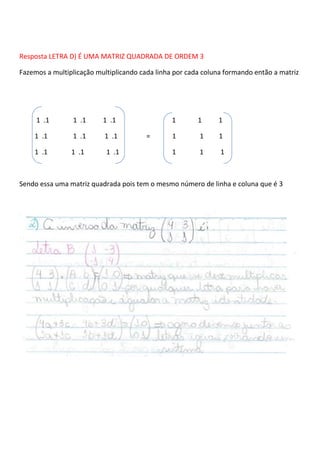 Resposta LETRA D) É UMA MATRIZ QUADRADA DE ORDEM 3
Fazemos a multiplicação multiplicando cada linha por cada coluna formando então a matriz
1 .1 1 .1 1 .1 1 1 1
1 .1 1 .1 1 .1 = 1 1 1
1 .1 1 .1 1 .1 1 1 1
Sendo essa uma matriz quadrada pois tem o mesmo número de linha e coluna que é 3
2) O inverso da matriz (4 3) é:
1 1
Letra B (1 -3)
-1 4
(4 3) . (A B) = (1 0) => matriz que se deve multiplicar
1 1 C d 0 1 por qualquer letra para haver
multiplicação e igualar a matriz identidade.
(4a+3c 4b+3d) = (1 0) => agora devemos juntar as
0 1 letras iguais formando um
sistema